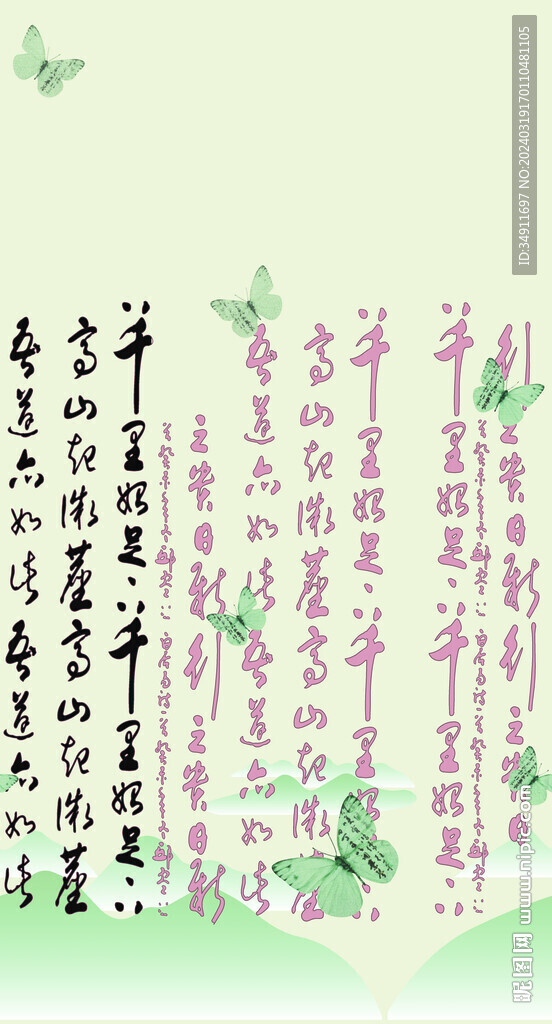 行之贵日新行之贵日新
千里始足下千里始足下
千里始足下千里始足下
高山起微尘高山起微尘
吾道亦如此吾道亦如此
行之贵日新行之贵日新
千里始足下千里始足下
高山起微尘高山起微尘
吾道亦如此吾道亦如此
ID:34911697 NO:20240319170110481105
昵图网 www.nipic.com